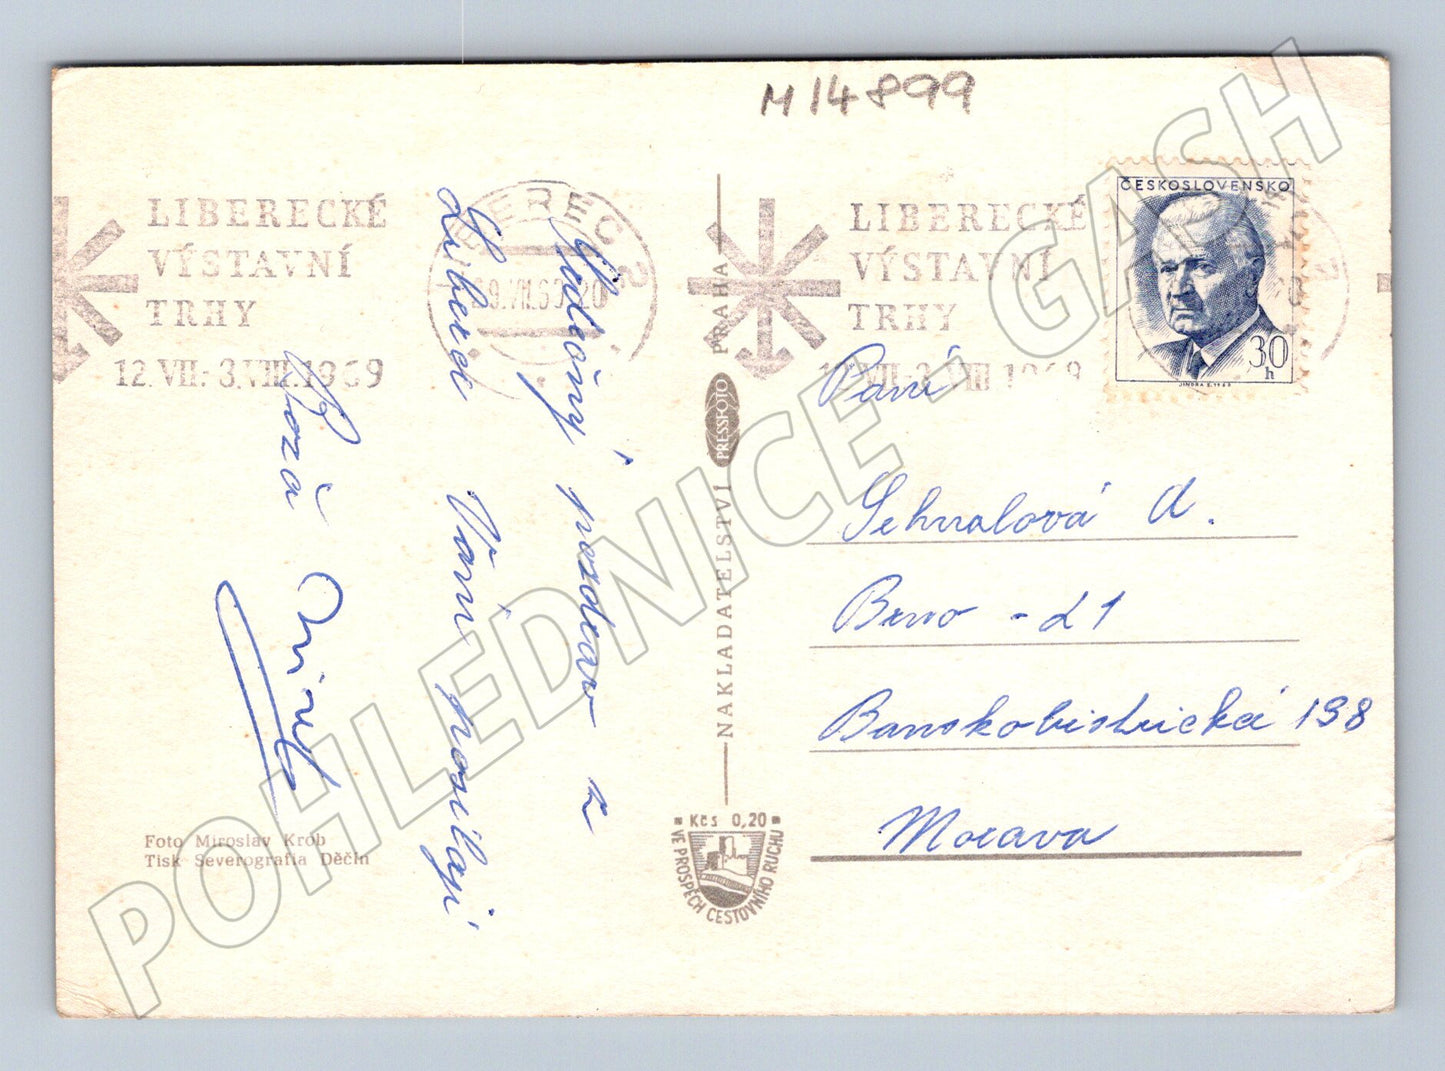 M 14899
LIBERECKÉ
VÝSTAVNÍ
TRHY
12.VII.-3.VIII.1969
LIBEREC 2
Srdečný pozdrav z
Liberce Vám posílají
Mirek
LIBERECKÉ
VÝSTAVNÍ
TRHY
12.VII.-3.VIII.1969
ČESKOSLOVENSKO
30
h
JINDRA S. 1968
Paní
Sehnalová A.
Brno - 21
Banskobistrická 198
Morava
NAKLADATELSTVÍ PRESSFOTO PRAHA
Kčs 0,20
VE PROSPĚCH CESTOVNÍHO RUCHU
Foto Miroslav Krob
Tisk Severografia Děčín
POHLEDNICE - GASH